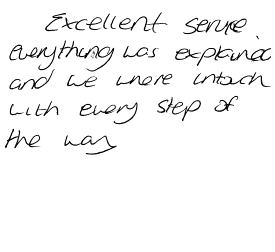 Excellent service.
everything was explained
and we where intouch
with every step of
the way